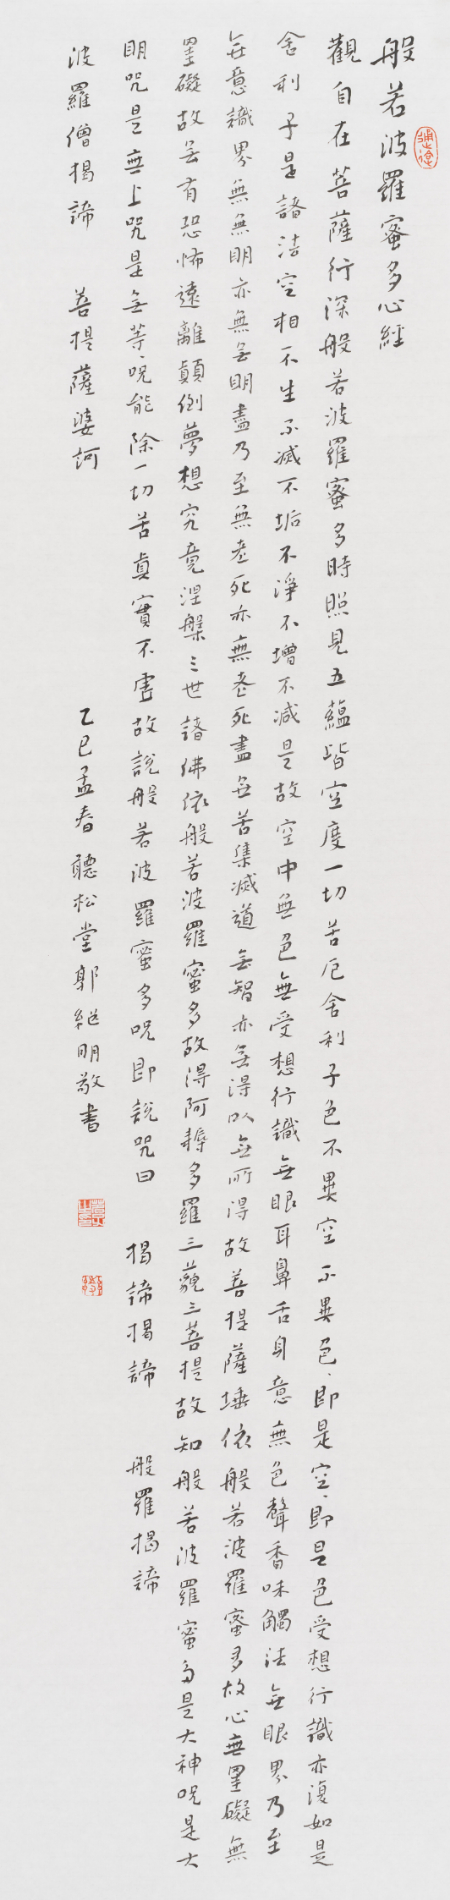 般若波羅蜜多心經
觀自在菩薩行深般若波羅蜜多時照見五蘊皆空度一切苦厄舍利子色不異空不異色、即是空、即是色受想行識亦復如是
舍利子是諸法空相不生不滅不垢不淨不增不減是故空中無色無受想行識無眼耳鼻舌身意無色聲香味觸法無眼界乃至
無意識界無無明亦無無明盡乃至無老死亦無老死盡無苦集滅道無智亦無得以無所得故菩提薩埵依般若波羅蜜多故心無罣礙無
罣礙故無有恐怖遠離顛倒夢想究竟涅槃三世諸佛依般若波羅蜜多故得阿耨多羅三藐三菩提故知般若波羅蜜多是大神咒是大
明咒是無上咒是無等、咒能除一切苦真實不虛故說般若波羅蜜多咒即說咒曰 揭諦揭諦 般羅揭諦
波羅僧揭諦 菩提薩婆訶
乙巳孟春 聽松堂郭繼明敬書